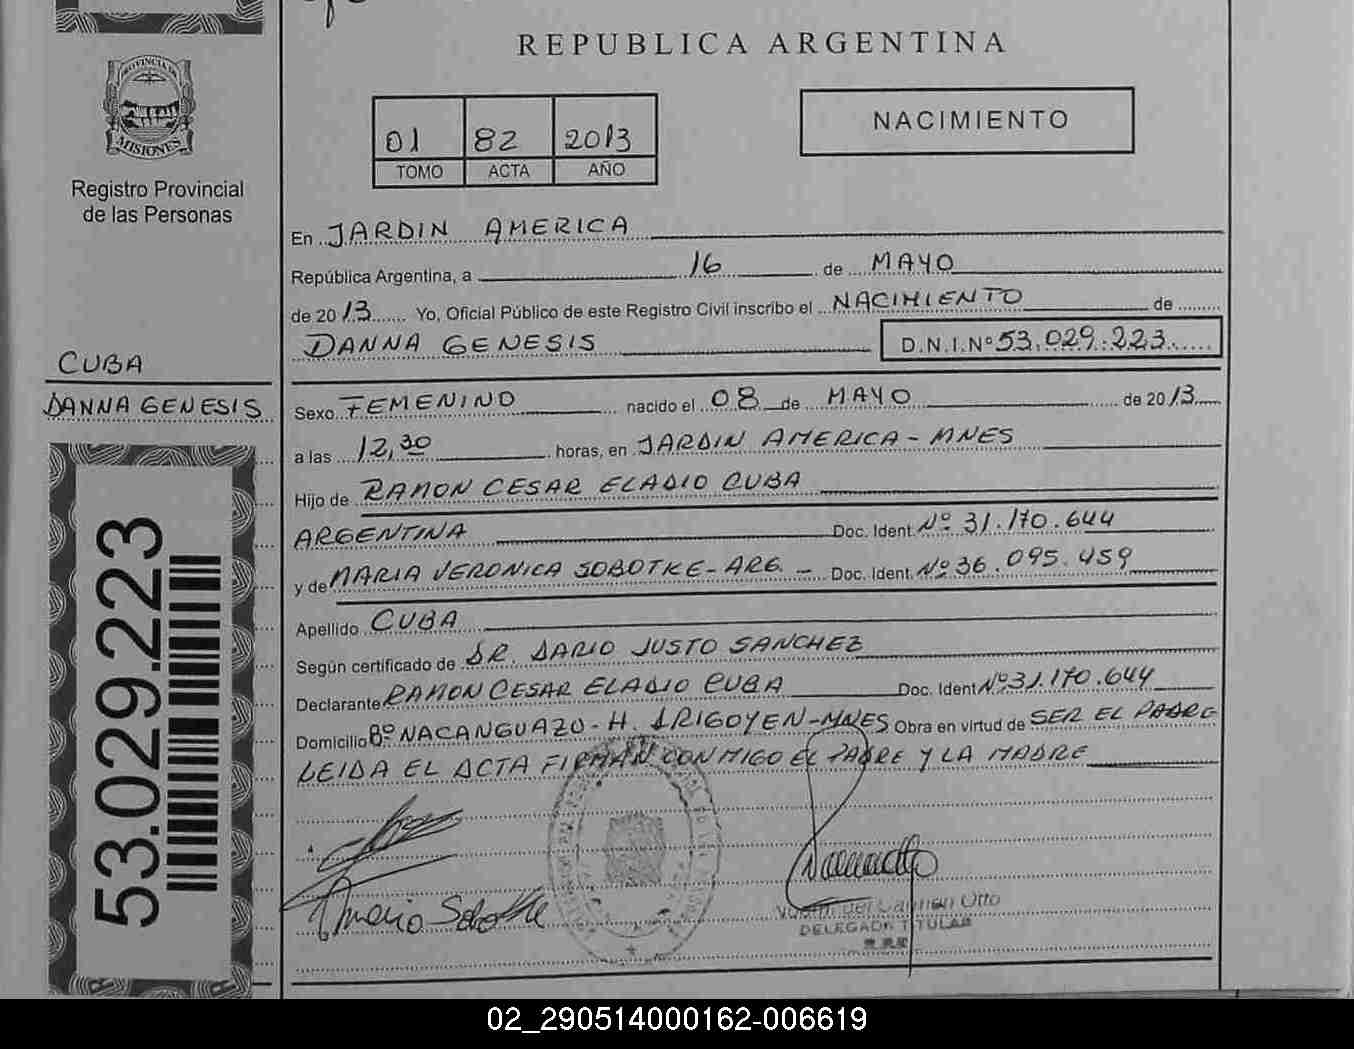 REPUBLICA ARGENTINA
PROVINCIA DE
MISIONES
Registro Provincial
de las Personas
01 82 2013
TOMO ACTA AÑO
NACIMIENTO
En JARDIN AMERICA
República Argentina, a 16 de MAYO
de 2013 Yo, Oficial Público de este Registro Civil inscribo el NACIMIENTO de
DANNA GENESIS D.N.I.Nº 53.029.223
CUBA
DANNA GENESIS
Sexo FEMENINO nacido el 08 de MAYO de 2013
a las 12,30 horas, en JARDIN AMERICA - MNES
Hijo de RAMON CESAR ELADIO CUBA
ARGENTINA Doc. Ident. Nº 31.170.644
y de MARIA VERONICA SOBOTKE - ARG. - Doc. Ident. Nº 36.095.459
Apellido CUBA
Según certificado de DR. DARIO JUSTO SANCHEZ
Declarante RAMON CESAR ELADIO CUBA Doc. Ident Nº 31.170.644
Domicilio Bº NACANGUAZO - H. IRIGOYEN - MNES Obra en virtud de SER EL PADRE
LEIDA EL ACTA FIRMAN CONMIGO EL PADRE Y LA MADRE
53.029.223
Maria Sobotke
del Carmen Otto
DELEGADA TITULAR
02_290514000162-006619